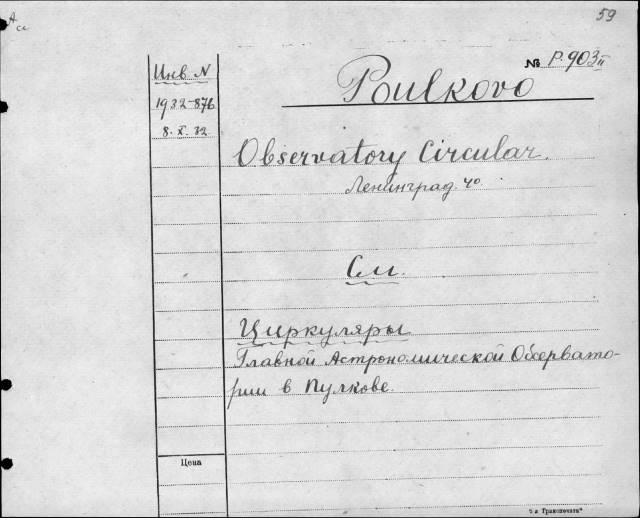 59
№ P.903 II
Инв N
1932-876
8.X.32
Poulkovo
Observatory Circular.
Ленинград. 4º
См.
Циркуляры
Главной Астрономической Обсервато-
рии в Пулкове.
Цена